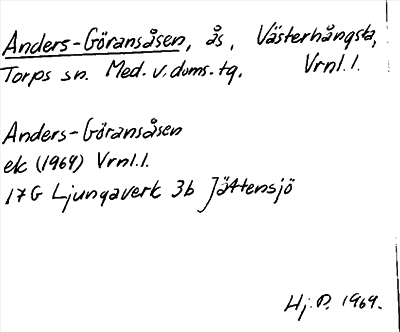 Anders-Göransåsen, ås, Västerhångsta,
Torps sn. Med. v. doms. tg. Vrnl. l.
Anders-Göransåsen
ek (1964) Vrnl. l.
17G Ljungaverk 3b Jättensjö
Hj. P. 1969.